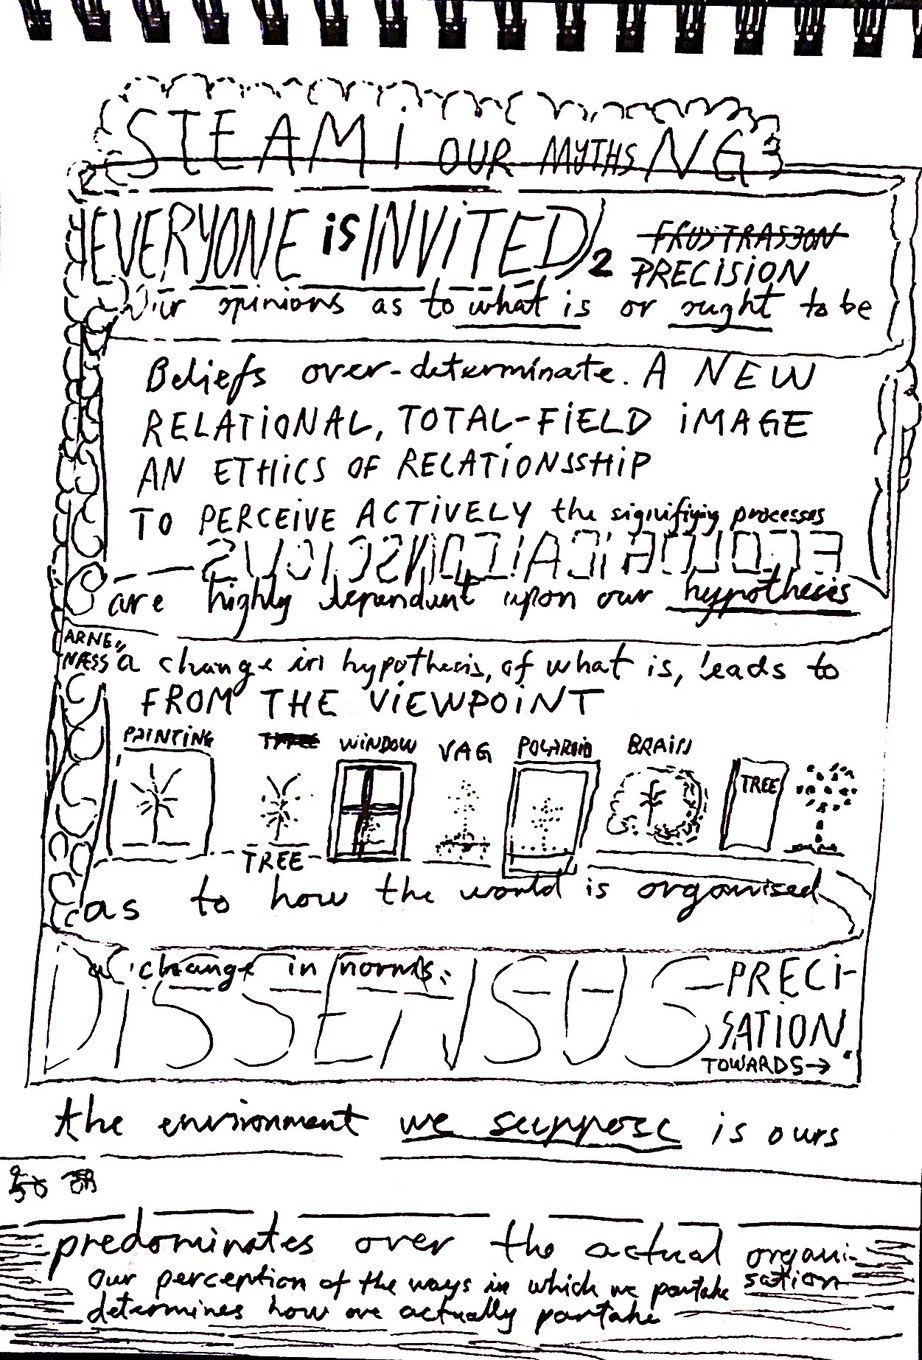 STEAMi OUR MYTHS NG
EVERYONE iS INVITED 2 FRUSTRASION
PRECISION
Our opinions as to what is or ought to be
Beliefs over-determinate. A NEW
RELATIONAL, TOTAL-FiELD iMAGE
AN ETHICS OF RELATiONSSHiP
TO PERCEiVE ACTiVELY the signifiyig processes
are highly dependent upon our hypothesis
ARNE
NÆSS a change in hypothesis, of what is, leads to
FROM THE ViEWPOiNT
PAINTING TREE WINDOW VAG POLAROID BRAIN
TREE
TREE
as to how the world is organised
a change in norms.
DiSSENSUS PRECi-
SATION.
TOWARDS→
the environment we suppose is ours
predominates over the actual organi-
sation
our perception of the ways in which we partake
determines how we actually partake